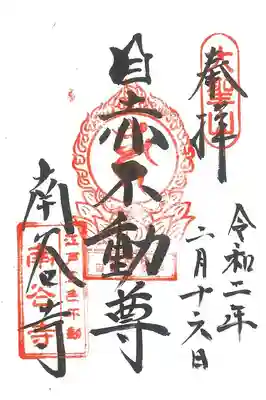 奉拝
令和二年
六月十六日
目赤不動尊
南谷寺
江戸五不動
南谷寺